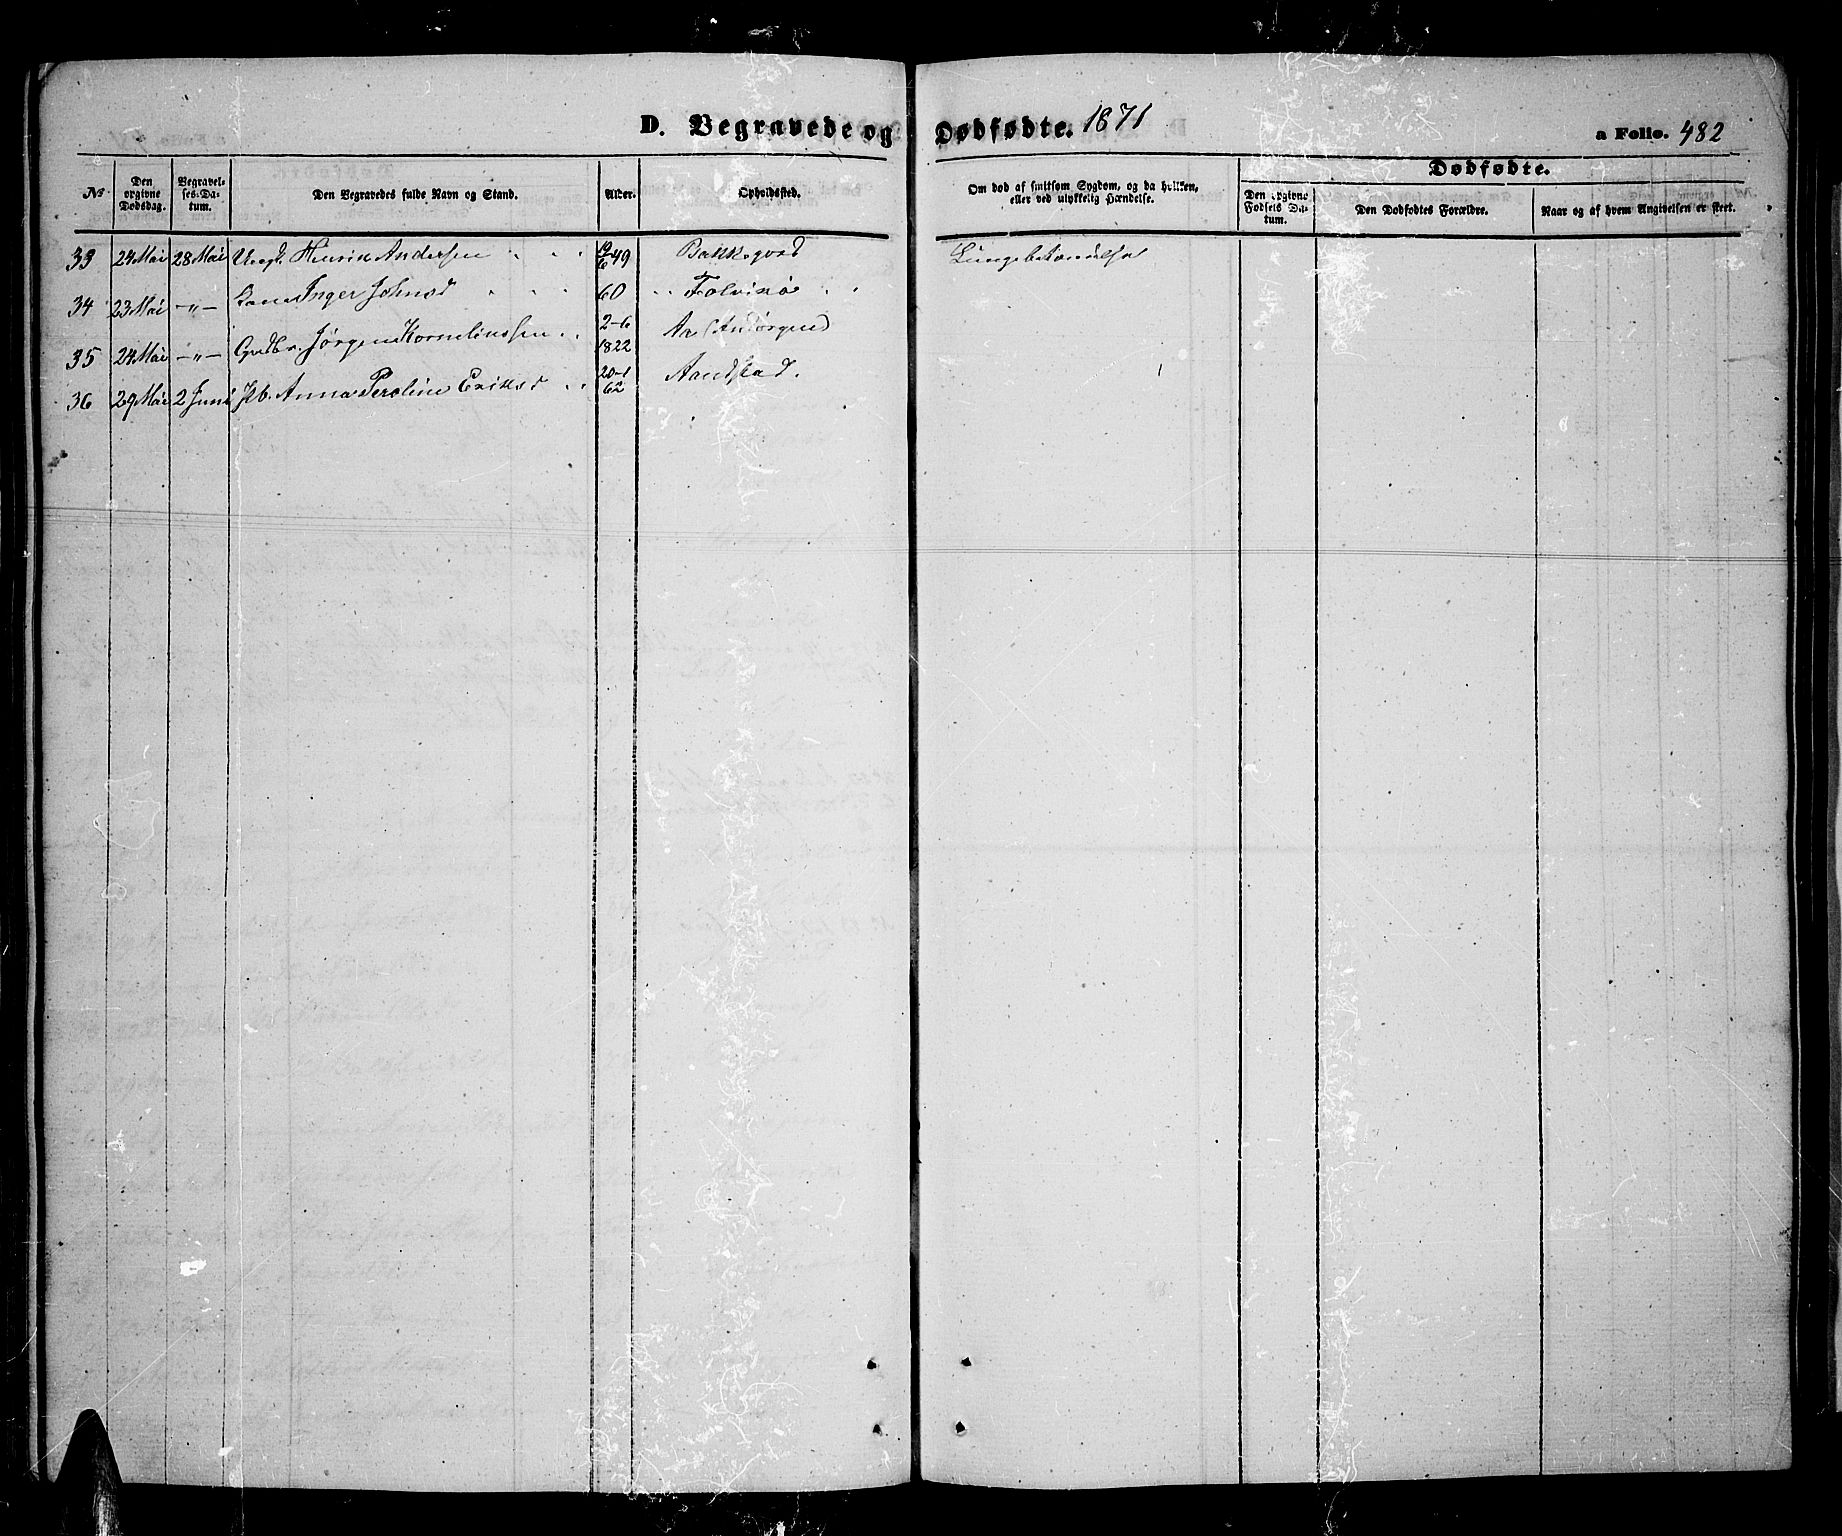 D. Begravede og Dødfødte. 1871
a Folio. 482
No
Den opgivne Dødsdag.
Begravelses-Datum.
Den Begravedes fulde Navn og Stand.
Alder.
Opholdssted.
Om død af smitsom Sygdom, og da hvilken, eller ved ulykkelig Hændelse.
Dødfødte.
Den opgivne Fødsels Datum.
Den Dødfødtes Forældre.
Naar og af hvem Angivelsen er skeet.
33 24 Mai 28 Mai Ungk. Henrik Andersen 49 Lungebetændelse
34 23 Mai -"- Kone Inger Johnsd 60
35 24 Mai -"- Gmdbr. Jørgen Korneliussen 2-6 1822
36 29 Mai 2 Juni Pb. Anna Peroline Eriksd 20-1 62 Aandstad.